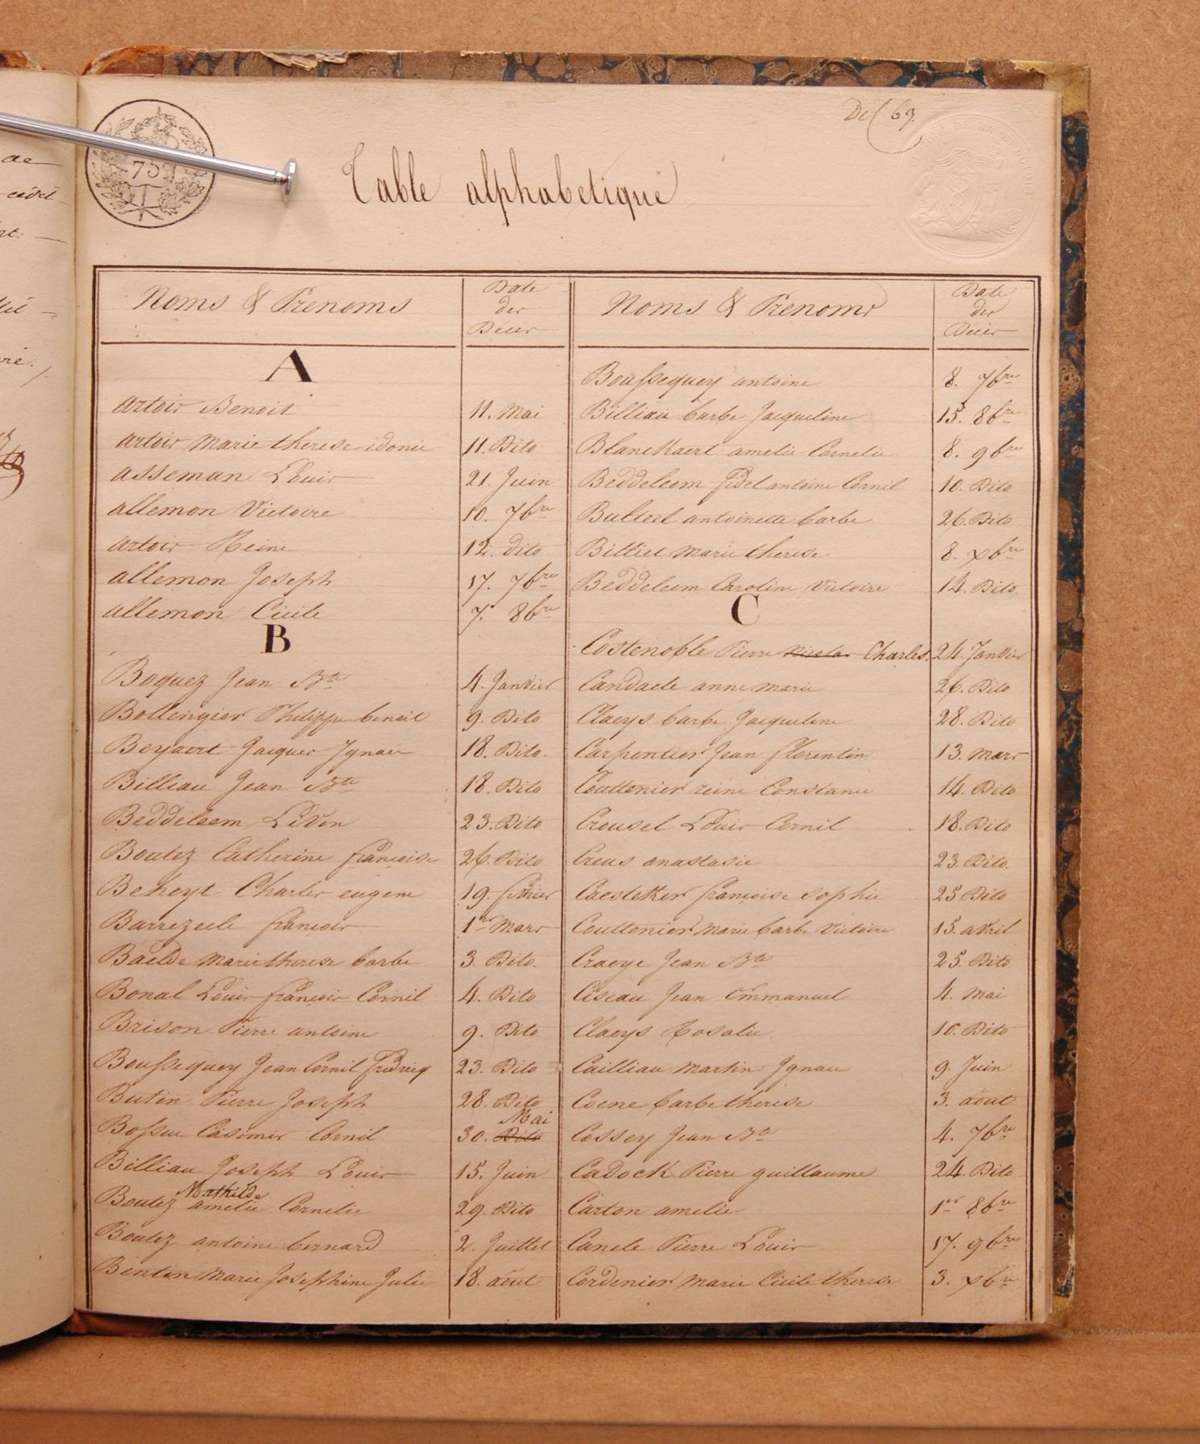 Dec 69.
75
Table alphabetique
Noms & Prenoms
Date
des
Décès
A
artois Benoit 11. Mai
artois Marie therese idonie 11. Dito
asseman Louis 21. Juin
allemon Victoire 10. 7bre
artois Reine 12. Dito
allemon Joseph 17. 7bre
allemon Cicile 7. 8bre
B
Boquez Jean Bte 4. Janvier
Bollengier Philippe benoit 9. Dito
Beyaert Jacques Ignace 18. Dito
Billiau Jean Bte 18. Dito
Beddeleem Lévon 23. Dito
Boutez Catherine françoise 26. Dito
Beheyt Charles eugene 19. fevrier
Barrezeele francois 1er Mars
Baelde Marie therese barbe 3. Dito
Bonal Louis francois Cornil 4. Dito
Brison Pierre antoine 9. Dito
Boussequey Jean Cornil fredriq 23. Dito
Butin Pierre Joseph 28. Dito
Mai
Bossu Casimir Cornil 30. Dito
Billiau Joseph Louis 15. Juin
Mathilde
Boutez amelie Cornelie 29. Dito
Boutez antoine bernard 2. Juillet
Benten Marie Josephine Julie 18. août
Noms & Prenoms
Date
des
Décès
Boussequey antoine 8. 7bre
Billiau barbe Jacqueline 15. 8bre
Blanckaert amelie Cornelie 8. 9bre
Beddeleem fidel antoine Cornil 10. Dito
Bulteel antoinette barbe 26. Dito
Billiet Marie therese 8. xbre
Beddeleem Caroline Victoire 14. Dito
C
Costenoble Pierre Nicolas Charles 24. Janvier
Candaele anne marie 26. Dito
Claeys barbe Jacqueline 28. Dito
Carpentier Jean florentin 13. Mars
Couttenier reine Constance 14. Dito
Creusel Louis Cornil 18. Dito
Creus anastasie 23. Dito
Caesteker françoise sophie 25 Dito
Couttenier Marie barbe Victoire 15. avril
Craeye Jean Bte 25. Dito
Ciseau Jean Emmanuel 4. Mai
Claeys Rosalie 10. Dito
Cailliau Martin Ignace 9. Juin
Coene barbe therese 3. août
Cossey Jean Bte 4. 7bre
Cadock Pierre guillaume 24 Dito
Carton amelie 1er 8bre
Canele Pierre Louis 17. 9bre
Cordenier Marie Cicile therese 3. xbre